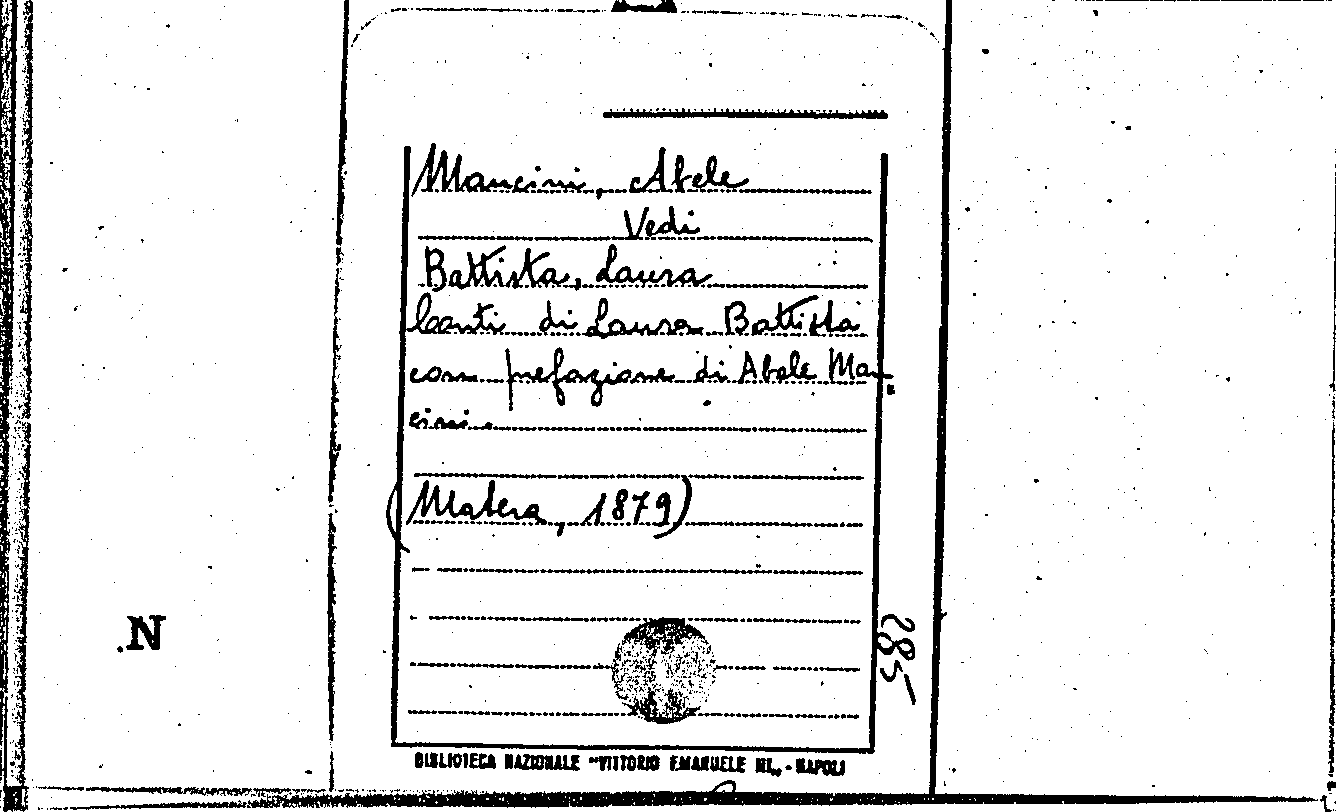 Mancini, Abele
Vedi
Battista, Laura
Canti di Laura Battista
con prefazione di Abele Man-
cini.
(Matera, 1879)
285
.N
BIBLIOTECA NAZIONALE "VITTORIO EMANUELE III„ - NAPOLI